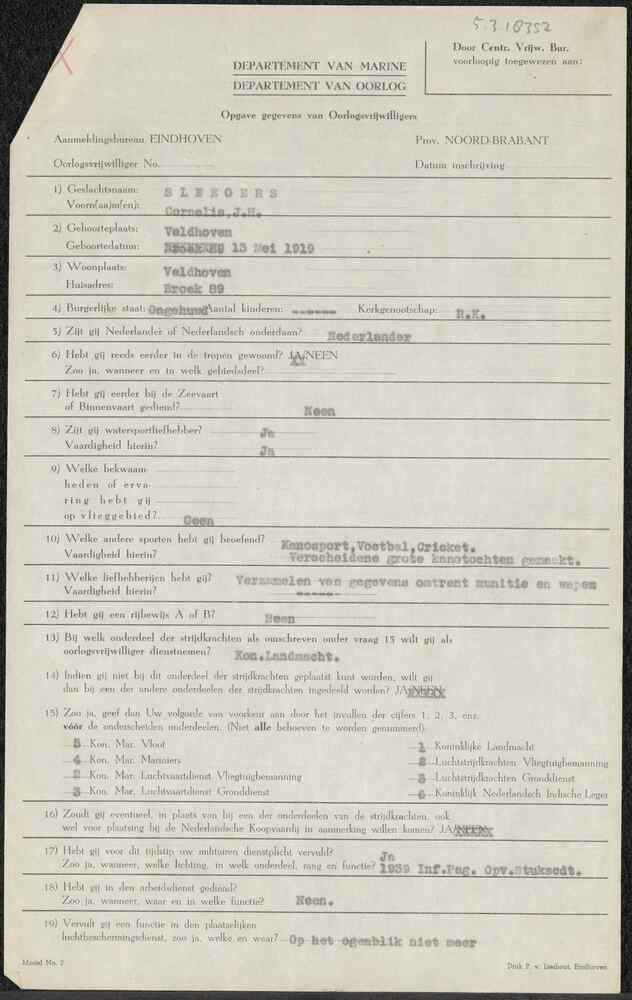 5.3.18352
Door Centr. Vrijw. Bur.
voorloopig toegewezen aan:
DEPARTEMENT VAN MARINE
DEPARTEMENT VAN OORLOG
Opgave gegevens van Oorlogsvrijwilligers
Aanmeldingsbureau EINDHOVEN Prov. NOORD-BRABANT
Oorlogsvrijwilliger No. Datum inschrijving
1) Geslachtsnaam: SLEEGERS
Voorn(aa)m(en): Cornelis,J.H.
2) Geboorteplaats: Veldhoven
Geboortedatum: 13 Mei 1919
3) Woonplaats: Veldhoven
Huisadres: Broek 89
4) Burgerlijke staat: Ongehuwd Aantal kinderen: ------ Kerkgenootschap: R.K.
5) Zijt gij Nederlander of Nederlandsch onderdaan? Nederlander
6) Hebt gij reeds eerder in de tropen gewoond? JA/NEEN
Zoo ja, wanneer en in welk gebiedsdeel?
7) Hebt gij eerder bij de Zeevaart
of Binnenvaart gediend? Neen
8) Zijt gij watersportliefhebber? Ja
Vaardigheid hierin? Ja
9) Welke bekwaam-
heden of erva-
ring hebt gij
op vlieggebied? Geen
10) Welke andere sporten hebt gij beoefend? Kanosport,Voetbal,Cricket.
Vaardigheid hierin? Verscheidene grote kanotochten gemaakt.
11) Welke liefhebberijen hebt gij? Verzamelen van gegevens omtrent munitie en wapen
Vaardigheid hierin? ------
12) Hebt gij een rijbewijs A of B? Neen
13) Bij welk onderdeel der strijdkrachten als omschreven onder vraag 15 wilt gij als
oorlogsvrijwilliger dienstnemen? Kon.Landmacht.
14) Indien gij niet bij dit onderdeel der strijdkrachten geplaatst kunt worden, wilt gij
dan bij een der andere onderdeelen der strijdkrachten ingedeeld worden? JA/NEEN
15) Zoo ja, geef dan Uw volgorde van voorkeur aan door het invullen der cijfers 1, 2, 3, enz.
vóór de onderscheiden onderdeelen. (Niet alle behoeven te worden genummerd).
5 Kon. Mar. Vloot 1 Koninklijke Landmacht
4 Kon. Mar. Mariniers 2 Luchtstrijdkrachten Vliegtuigbemanning
2 Kon. Mar. Luchtvaartdienst Vliegtuigbemanning 3 Luchtstrijdkrachten Gronddienst
3 Kon. Mar. Luchtvaartdienst Gronddienst 6 Koninklijk Nederlandsch Indische Leger
16) Zoudt gij eventueel, in plaats van bij een der onderdeelen van de strijdkrachten, ook
wel voor plaatsing bij de Nederlandsche Koopvaardij in aanmerking willen komen? JA/NEEN
17) Hebt gij voor dit tijdstip uw militairen dienstplicht vervuld? Ja
Zoo ja, wanneer, welke lichting, in welk onderdeel, rang en functie? 1939 Inf.Pag. Opv.Stukscdt.
18) Hebt gij in den arbeidsdienst gediend?
Zoo ja, wanneer, waar en in welke functie? Neen.
19) Vervult gij een functie in den plaatselijken
luchtbeschermingsdienst, zoo ja, welke en waar? Op het ogenblik niet meer
Model No. 2 Druk P. v. Lieshout, Eindhoven